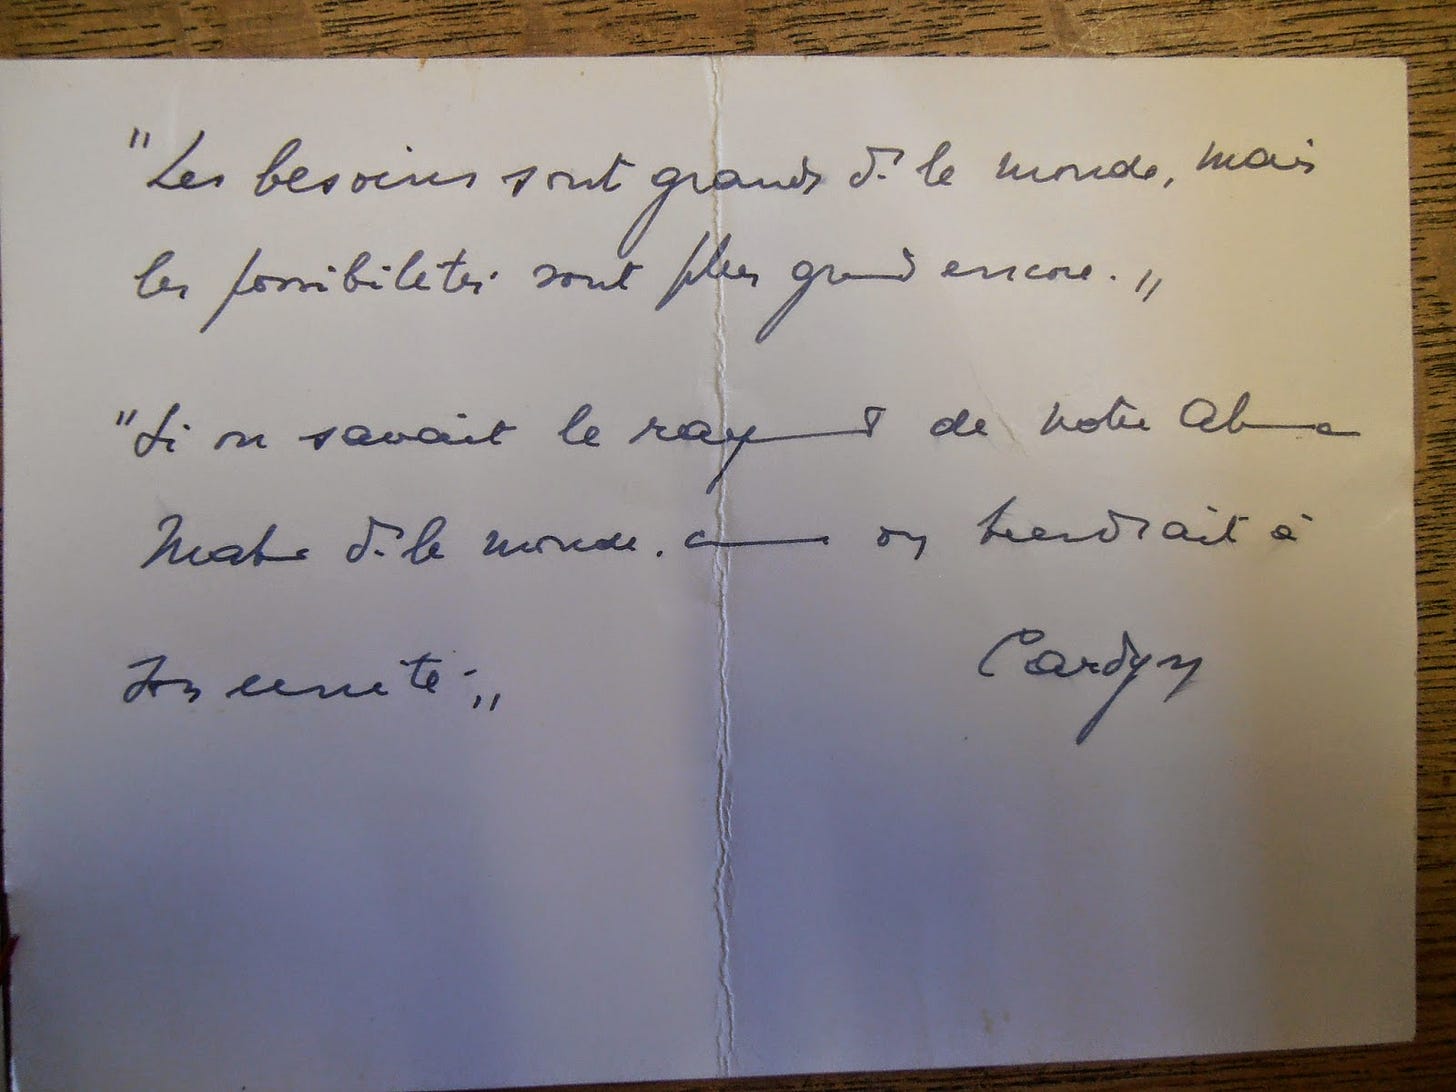 "Les besoins sont grands d. le monde, mais
les possibilités sont plus grand encore."
"Si on savait le ray⁠t de notre Alma
Mater d. le monde. comme on tiendrait à
son unité."
Cardyn